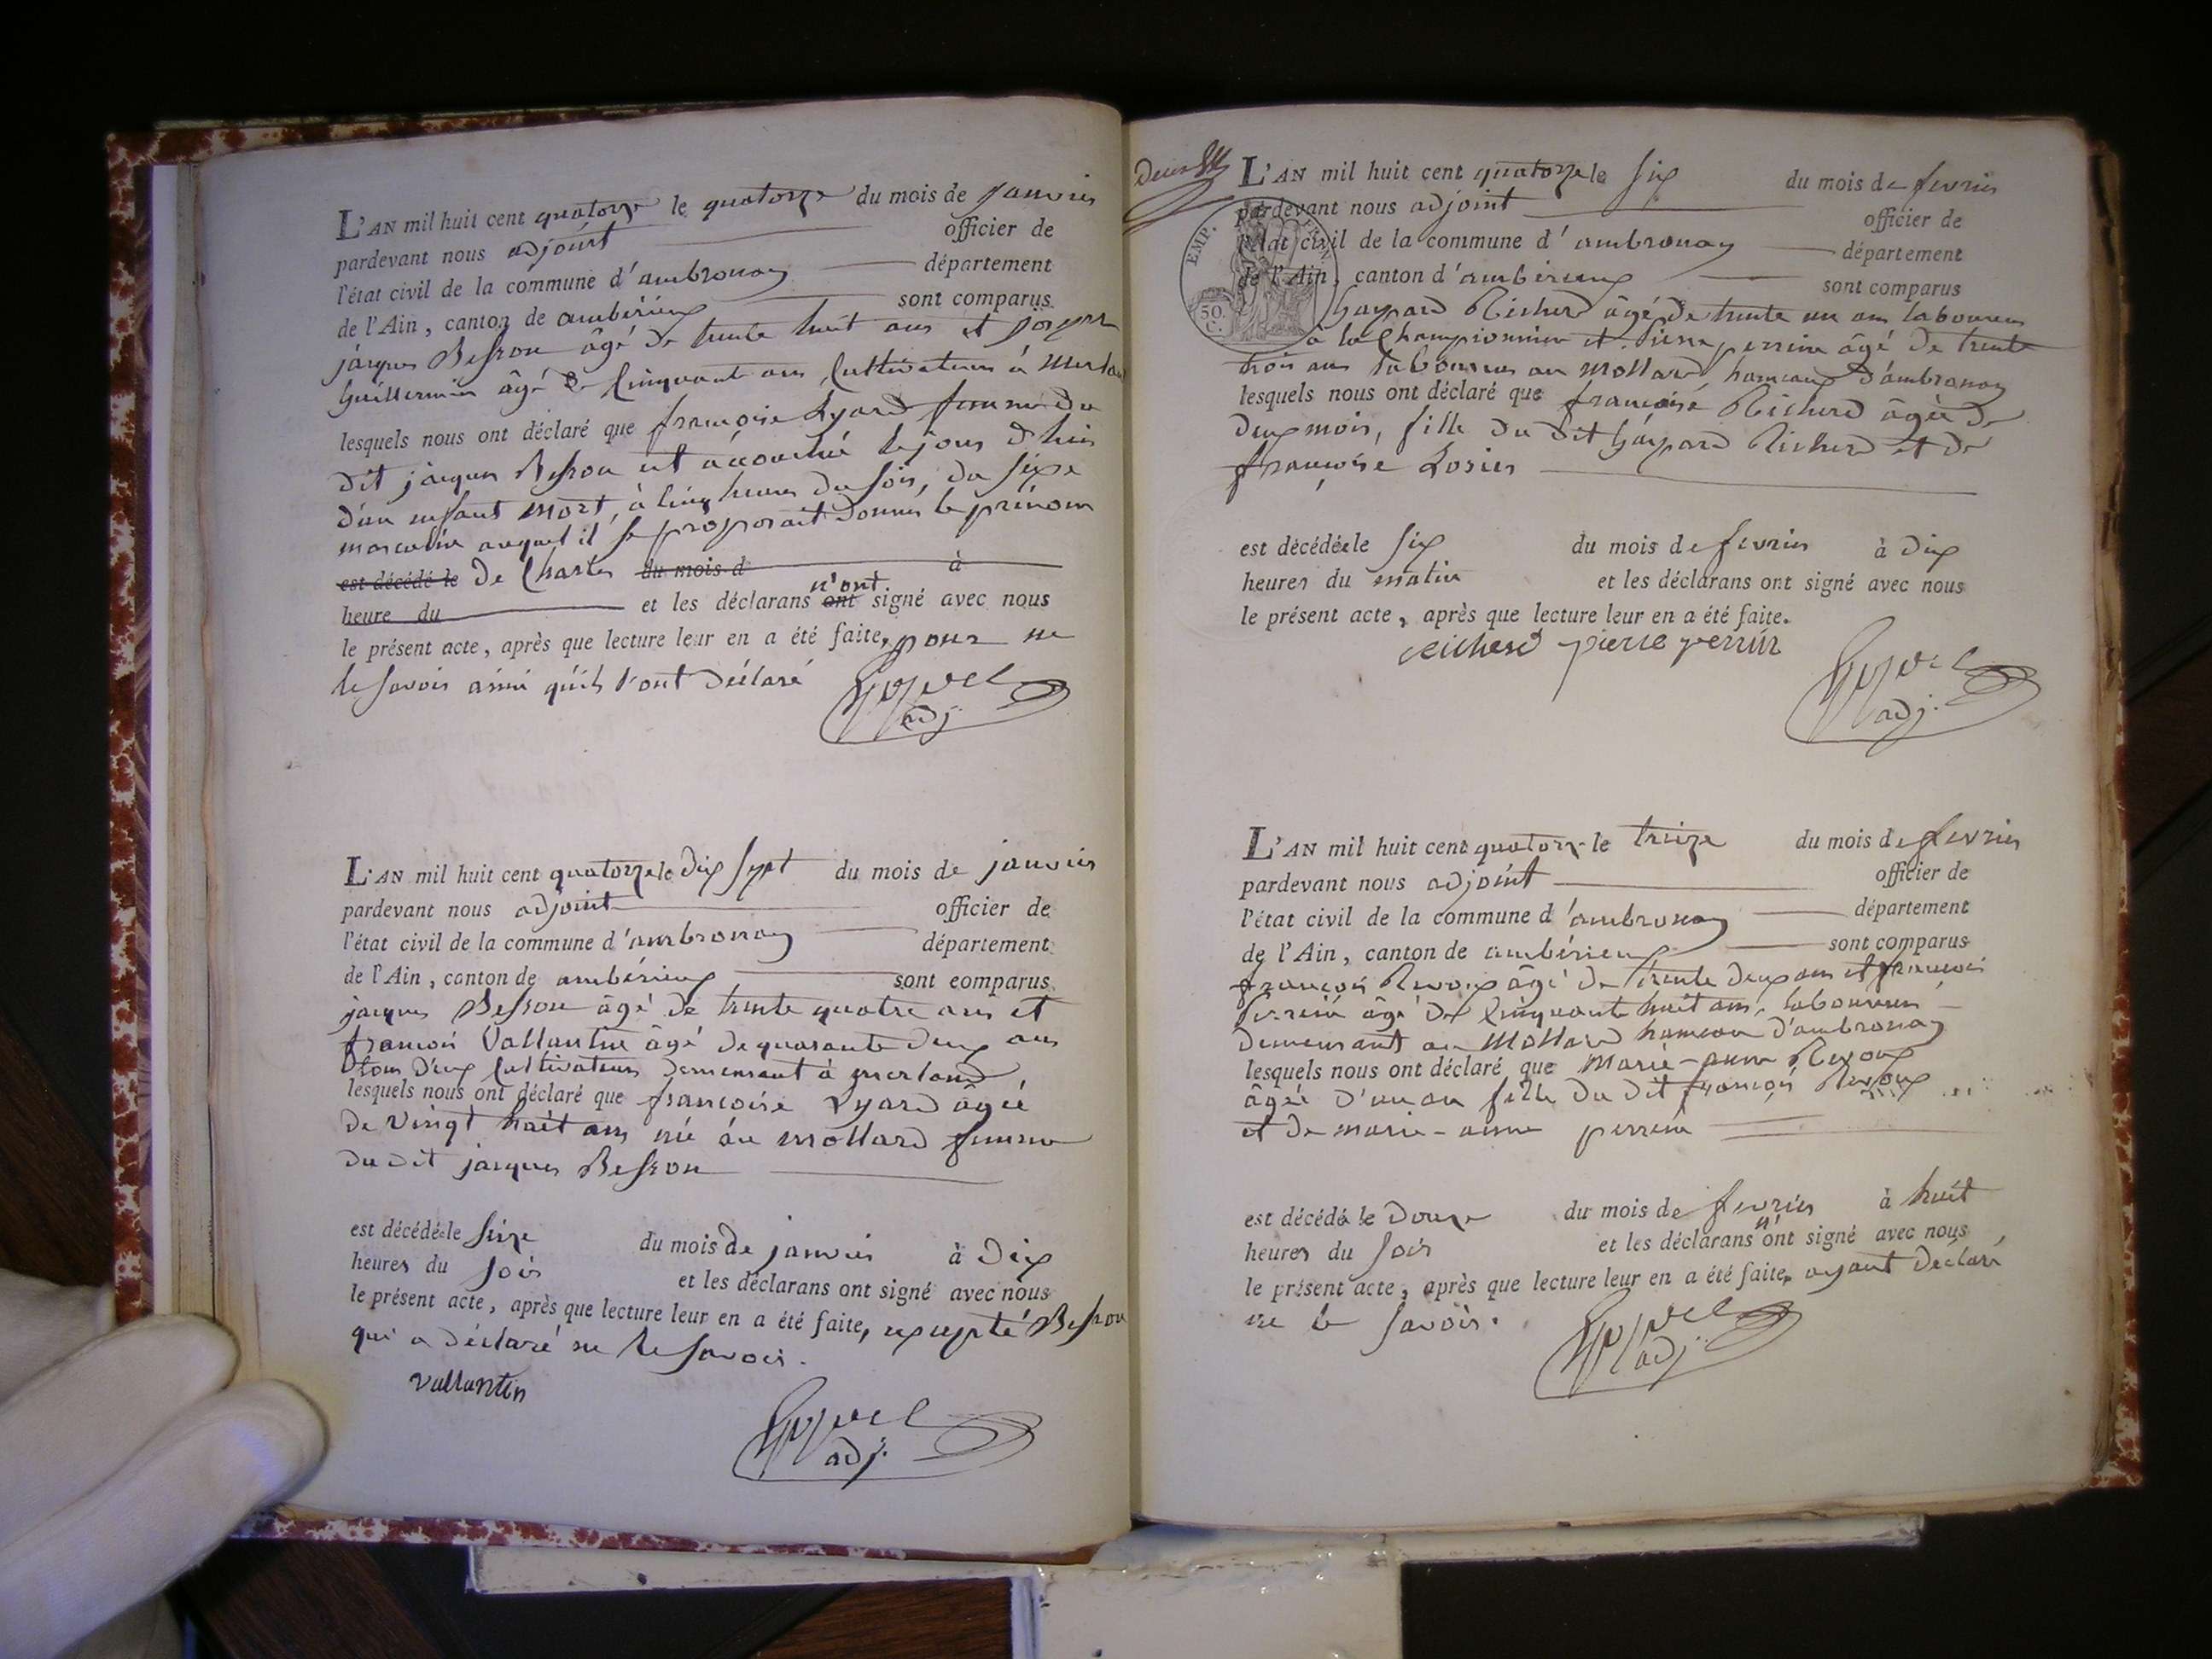 L'AN mil huit cent quatorze le quatorze du mois de janvier
pardevant nous adjoint officier de
l'état civil de la commune d'ambronay département
de l'Ain, canton de ambérieux sont comparus
jacques Besson âgé de trente huit ans et joseph
Guillermin âgé de cinquante ans, cultivateurs à Merland
lesquels nous ont déclaré que françoise Lyard femme du
dit jacques Besson est accouchée le jour d'hier
d'un enfant mort, à cinq heures du soir, du sexe
masculin auquel il se proposait donner le prénom
est décédé le de Charles du mois d à
heure du et les déclarans ont n'ont signé avec nous
le présent acte, après que lecture leur en a été faite, pour ne
le savoir ainsi qu'ils l'ont déclaré
adj.
L'AN mil huit cent quatorze le dix sept du mois de janvier
pardevant nous adjoint officier de
l'état civil de la commune d'ambronay département
de l'Ain, canton de ambérieux sont comparus
jacques Besson âgé de trente quatre ans et
françois Vallantin âgé de quarante deux ans
tous deux cultivateurs demeurant à merland
lesquels nous ont déclaré que françoise Lyard âgée
de vingt huit ans née au mollard femme
du dit jacques Besson
est décédée le seize du mois de janvier à dix
heures du soir et les déclarans ont signé avec nous
le présent acte, après que lecture leur en a été faite, excepté Besson
qui a déclaré ne le savoir.
vallantin
adj.
L'AN mil huit cent quatorze le six du mois de fevrier
pardevant nous adjoint officier de
l'état civil de la commune d'ambronay département
de l'Ain, canton d'ambérieux sont comparus
EMP. FRAN.
50. C.
Gaspard Richerd âgé de trente un ans laboureur
à la Championnière et Pierre perrin âgé de trente
trois ans laboureur au Mollard, hameaux d'ambronay
lesquels nous ont déclaré que françoise Richerd âgée de
deux mois, fille du dit Gaspard Richerd et de
françoise Losier
est décédée le six du mois de fevrier à dix
heures du matin et les déclarans ont signé avec nous
le présent acte, après que lecture leur en a été faite.
richerd pierre perrin
adj.
L'AN mil huit cent quatorze le treize du mois de fevrier
pardevant nous adjoint officier de
l'état civil de la commune d'ambronay département
de l'Ain, canton de ambérieux sont comparus
françois Revoux âgé de trente deux ans et françois
Perrin âgé de cinquante huit ans, laboureurs
demeurant au Mollard hameau d'ambronay
lesquels nous ont déclaré que Marie-anne Revoux
âgée d'un an fille du dit françois Revoux
et de marie-anne perrin
est décédé le douze du mois de fevrier à huit
heures du soir et les déclarans n'ont signé avec nous
le présent acte, après que lecture leur en a été faite, ayant déclaré
ne le savoir.
adj.